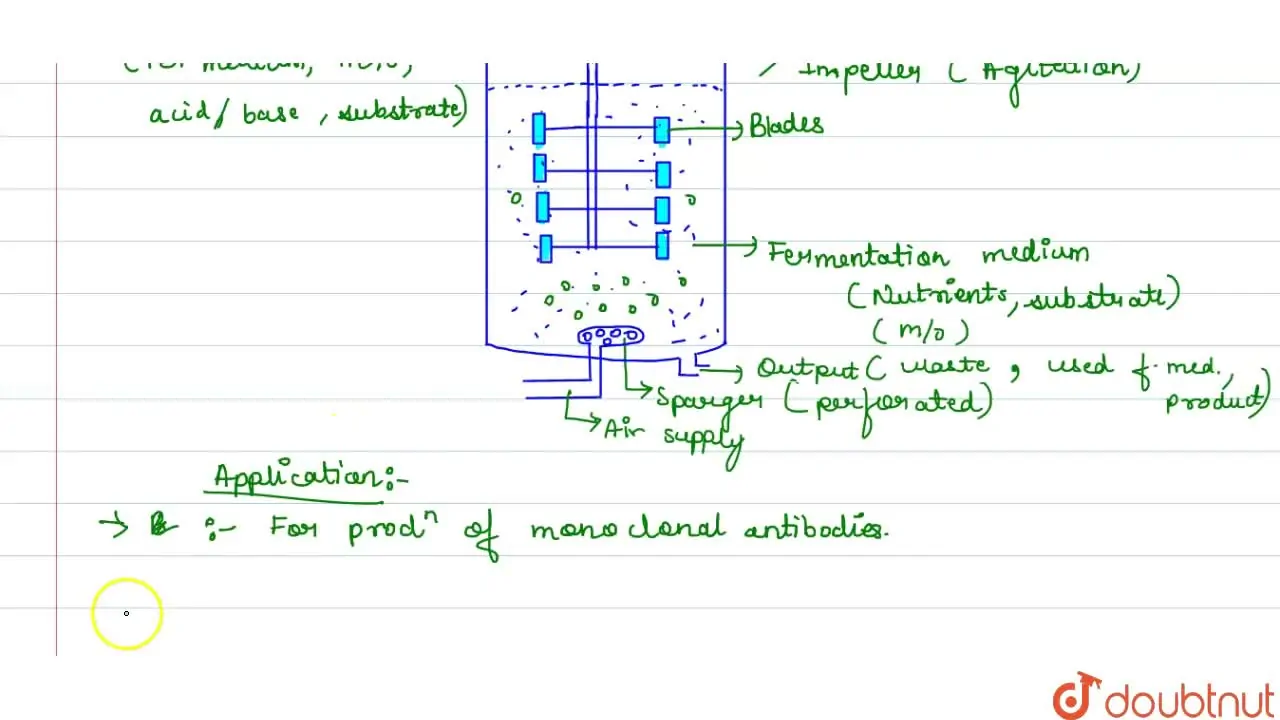 (for medium, m/o,
acid/ base, substrate)
Impeller (Agitation)
Blades
Fermentation medium
(Nutrients, substrate)
(m/o)
Output (waste, used f. med.,
product)
Sparger (perforated)
Air supply
Application:-
→ :- For prodⁿ of monoclonal antibodies.
doubtnut